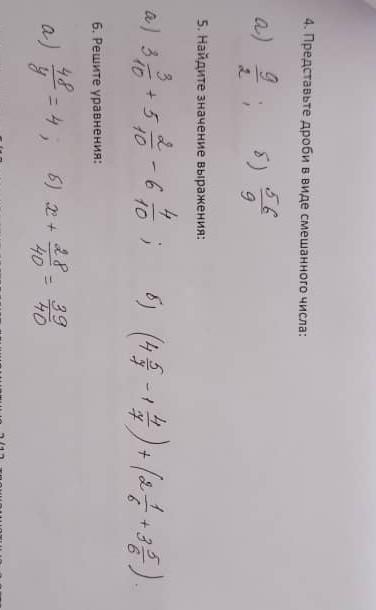 4. Представьте дроби в виде смешанного числа:
а) 9/2 ; б) 56/9
5. Найдите значение выражения:
а) 3 3/10 + 5 2/10 − 6 4/10 ; б) (4 5/7 − 1 4/7) + (2 1/6 + 3 5/6).
6. Решите уравнения:
а) 48/y = 4 ; б) x + 28/40 = 39/40